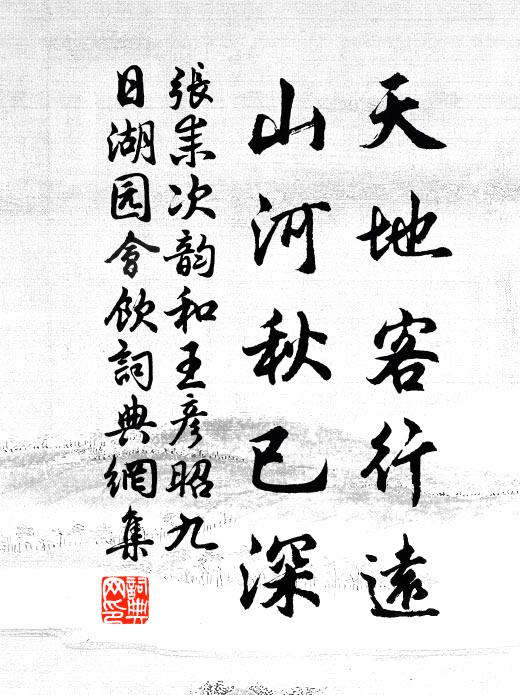 天地客行遠
山河秋已深
張耒次韵和王彦昭九
日湖园會飲詞典網集
詞典網印